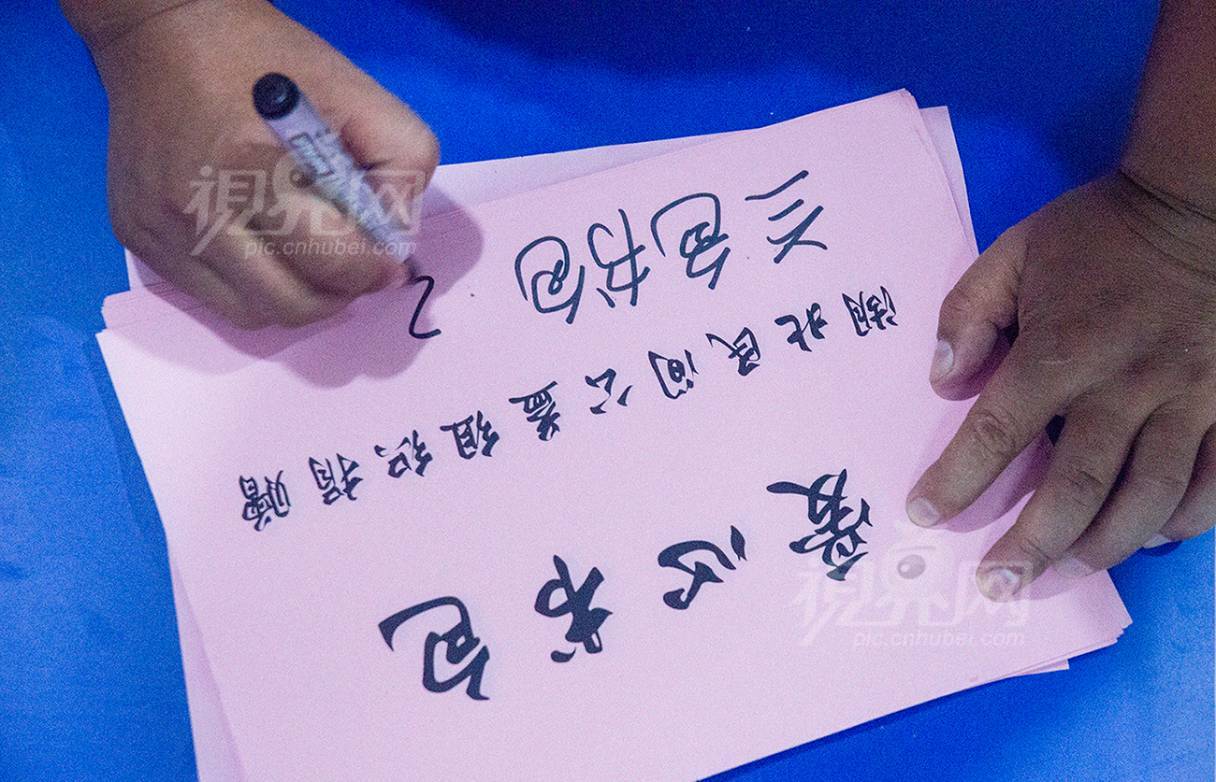 愛心书包
湖北民间公益组织捐赠
兰色书包 2
視界网
pic.cnhubei.com
視界网
pic.cnhubei.com